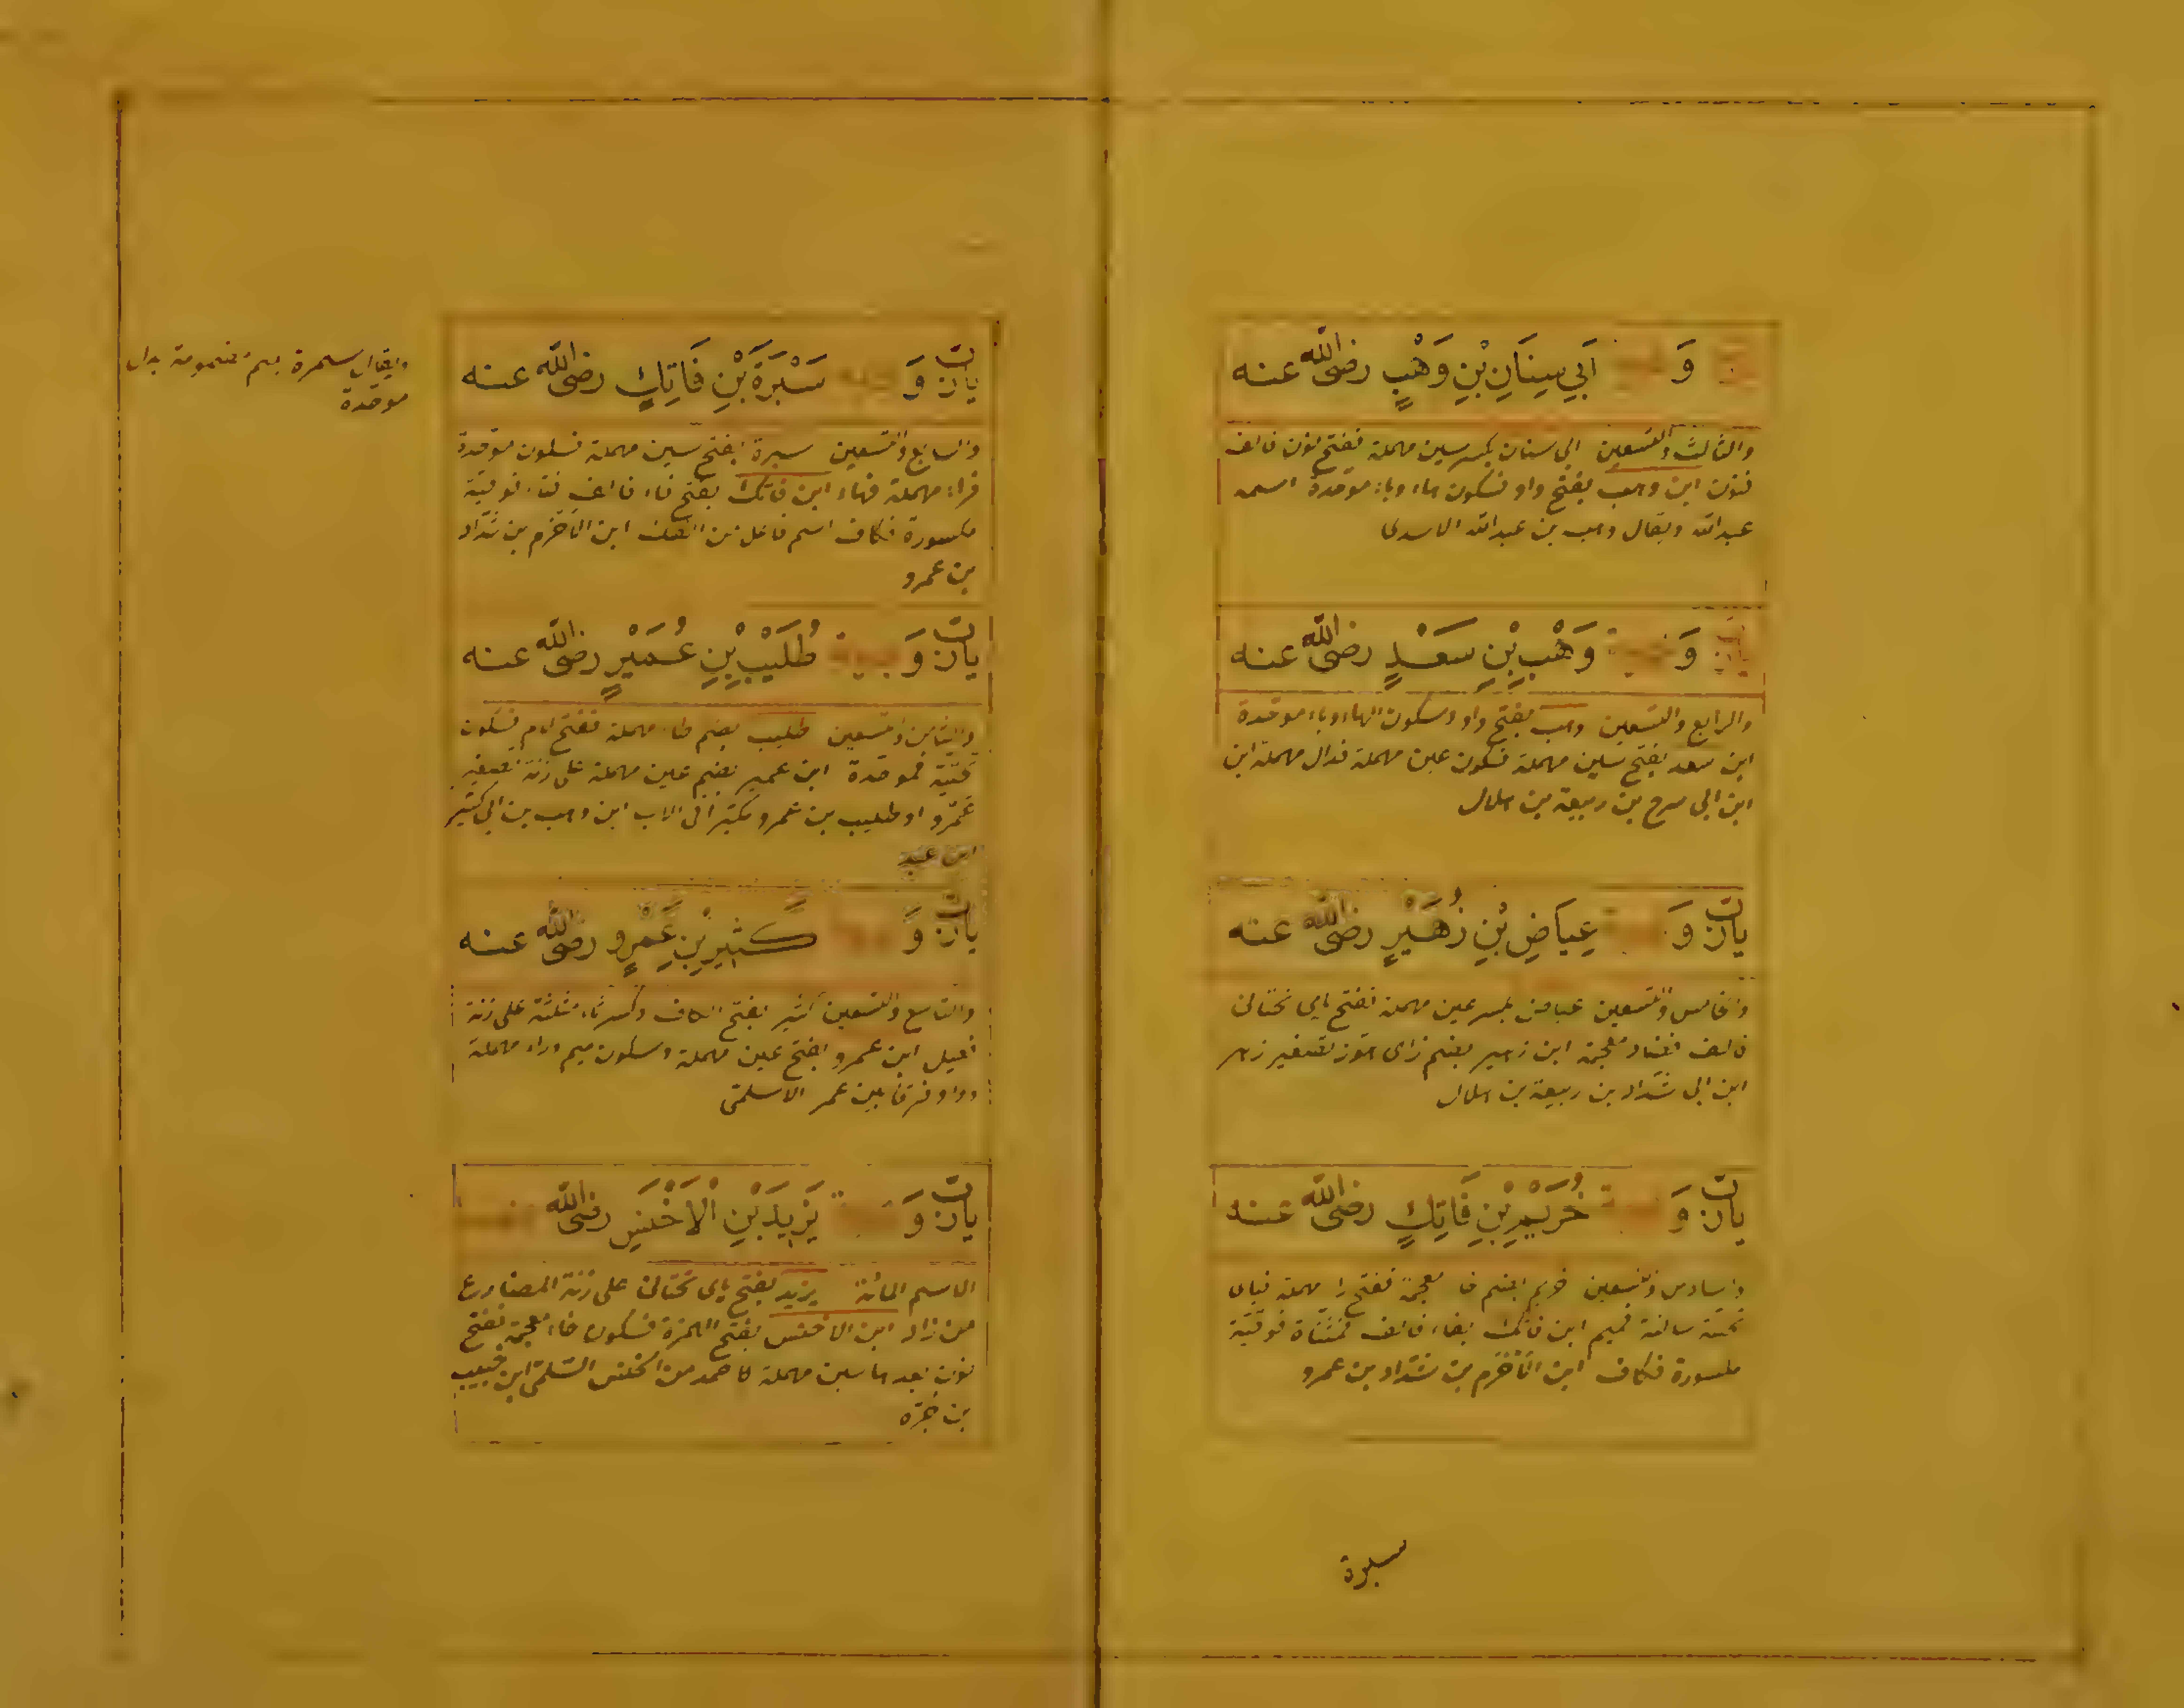 وَ اَبِي سِنَانِ بْنِ وَهْبٍ رضى الله عنه
والثالث والتسعين ابي سنان بكسر سين مهملة ففتح نون فالف
فنون ابن وهب بفتح واو فسكون هاء وباء موحدة اسمه
عبد الله ويقال وهب بن عبد الله الاسدى
وَ وَهْبِ بْنِ سَعْدٍ رضى الله عنه
والرابع والتسعين وهب بفتح واو وسكون الهاء وباء موحدة
ابن سعد بفتح سين مهملة فسكون عين مهملة فدال مهملة ابن
ابن ابي سرح بن ربيعة بن هلال
يان وَ عِيَاضِ بْنِ زُهَيْرٍ رضى الله عنه
والخامس والتسعين عياض بكسر عين مهملة ففتح ياى تحتانى
فالف فضاد معجمة ابن زهير بضم زاى هوز تصغير زهر
ابن ابي شداد بن ربيعة بن هلال
يان وَ خُرَيْمِ بْنِ فَاتِكٍ رضى الله عنه
والسادس والتسعين خريم بضم خا معجمة ففتح را مهملة فياى
تحتية ساكنة فميم ابن فاتك بفاء فالف فمثناة فوقية
مكسورة فكاف ابن الأخرم بن شداد بن عمرو
سبرة
يان وَ سَبْرَةَ بْنِ فَاتِكٍ رضى الله عنه
والسابع والتسعين سبرة بفتح سين مهملة فسكون موحدة
فراء مهملة فهاء ابن فاتك بفتح فاء فالف فتاء فوقية
مكسورة فكاف اسم فاعل من الفتك ابن الأخرم بن شداد
بن عمرو
ويقال سمرة بميم مضمومة بدل
موحدة
يان وَ طُلَيْبِ بْنِ عُمَيْرٍ رضى الله عنه
والثامن والتسعين طليب بضم طاء مهملة ففتح لام فسكون
تحتية فموحدة ابن عمير بضم عين مهملة على زنة تصغير
عمرو او طليب بن عمرو مكبر الى الاب ابن وهب بن ابي كثير
ابن عبد
يان وَ كَثِيرِ بْنِ عَمْرٍو رضى الله عنه
والتاسع والتسعين كثير بفتح الكاف وكسر ثاء مثلثة على زنة
فعيل ابن عمرو بفتح عين مهملة وسكون ميم وراء مهملة
وواو فرقا بين عمر الاسلمى
يان وَ يَزِيدَ بْنِ الْاَخْنَسِ رضى الله
الاسم المائة يزيد بفتح ياى تحتانى على زنة المضارع
من زاد ابن الاخنس بفتح الهمزة فسكون خاء معجمة ففتح
نون بعدها سين مهملة كاحمد من الخنس السلمى ابن حبيب
بن جره